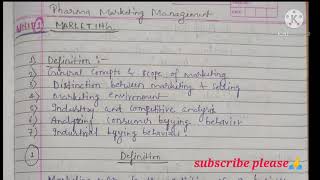 Pharma Marketing Management
UNIT-1
MARKETING
1) Definition :-
2) General Concepts & Scope of marketing
3) Distinction between marketing & selling
4) Marketing environment
5) Industry and competitive analysis
6) Analyzing consumer buying behavior
7) Industrial buying behaviour
1 Definition
subscribe please🙏